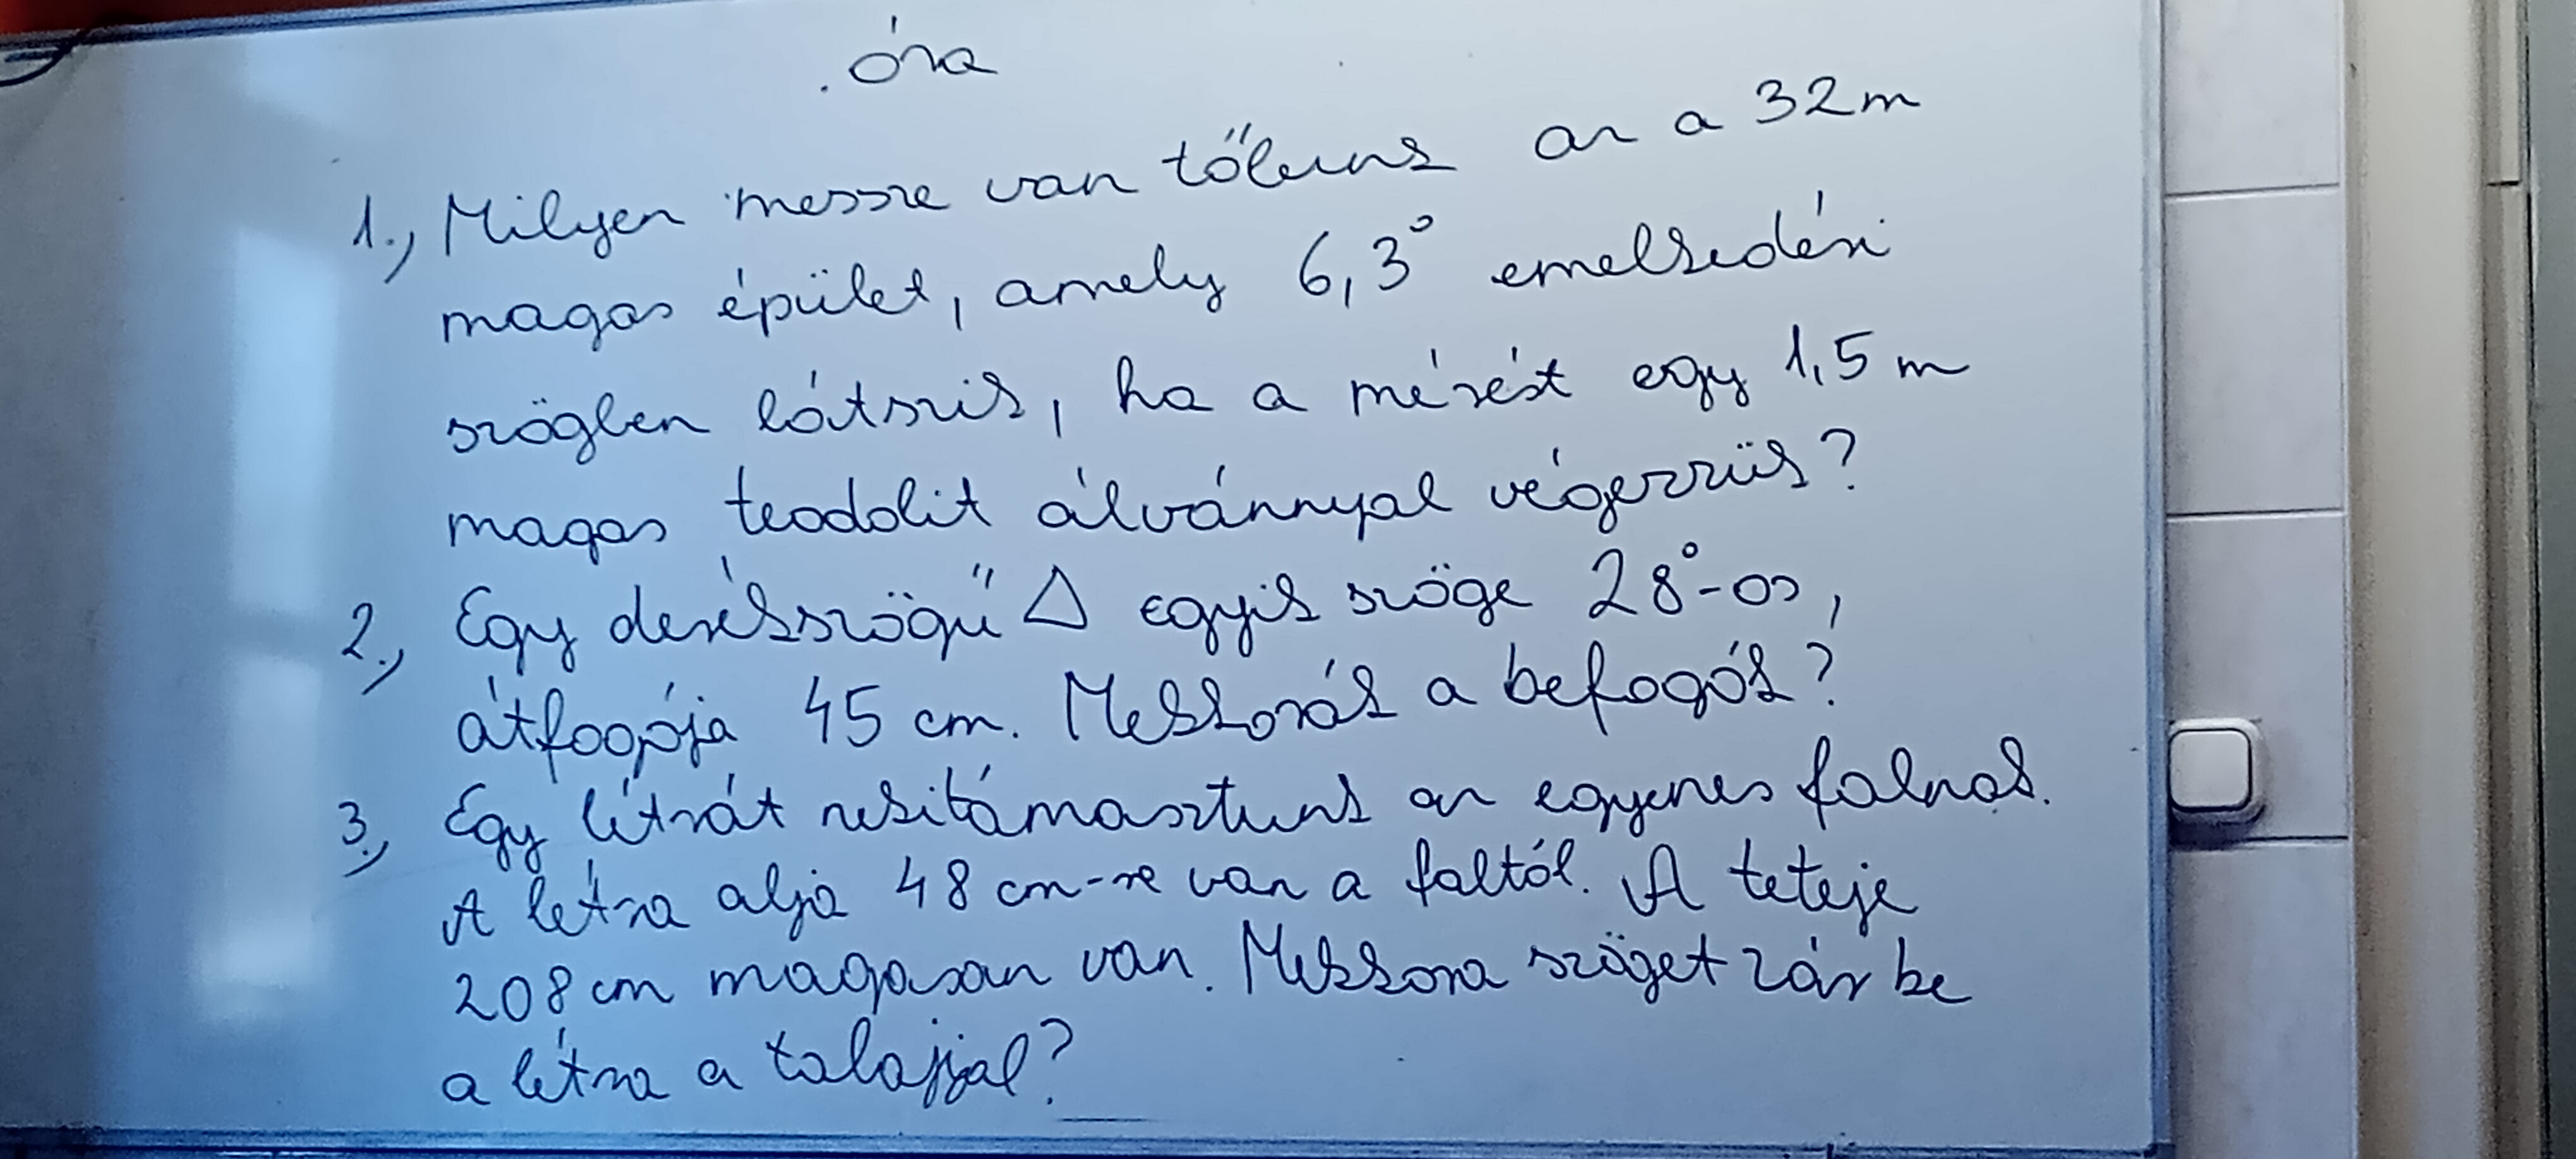 . óra
1., Milyen messze van tőlünk az a 32 m
magas épület, amely 6,3° emelkedési
szögben látszik, ha a mérést egy 1,5 m
magas teodolit álvánnyal végezzük?
2., Egy derékszögű △ egyik szöge 28°-os,
átfogója 45 cm. Mekkorák a befogók?
3., Egy létrát nekitámasztunk az egyenes falnak.
A létra alja 48 cm-re van a faltól. A teteje
208 cm magasan van. Mekkora szöget zár be
a létra a talajjal?